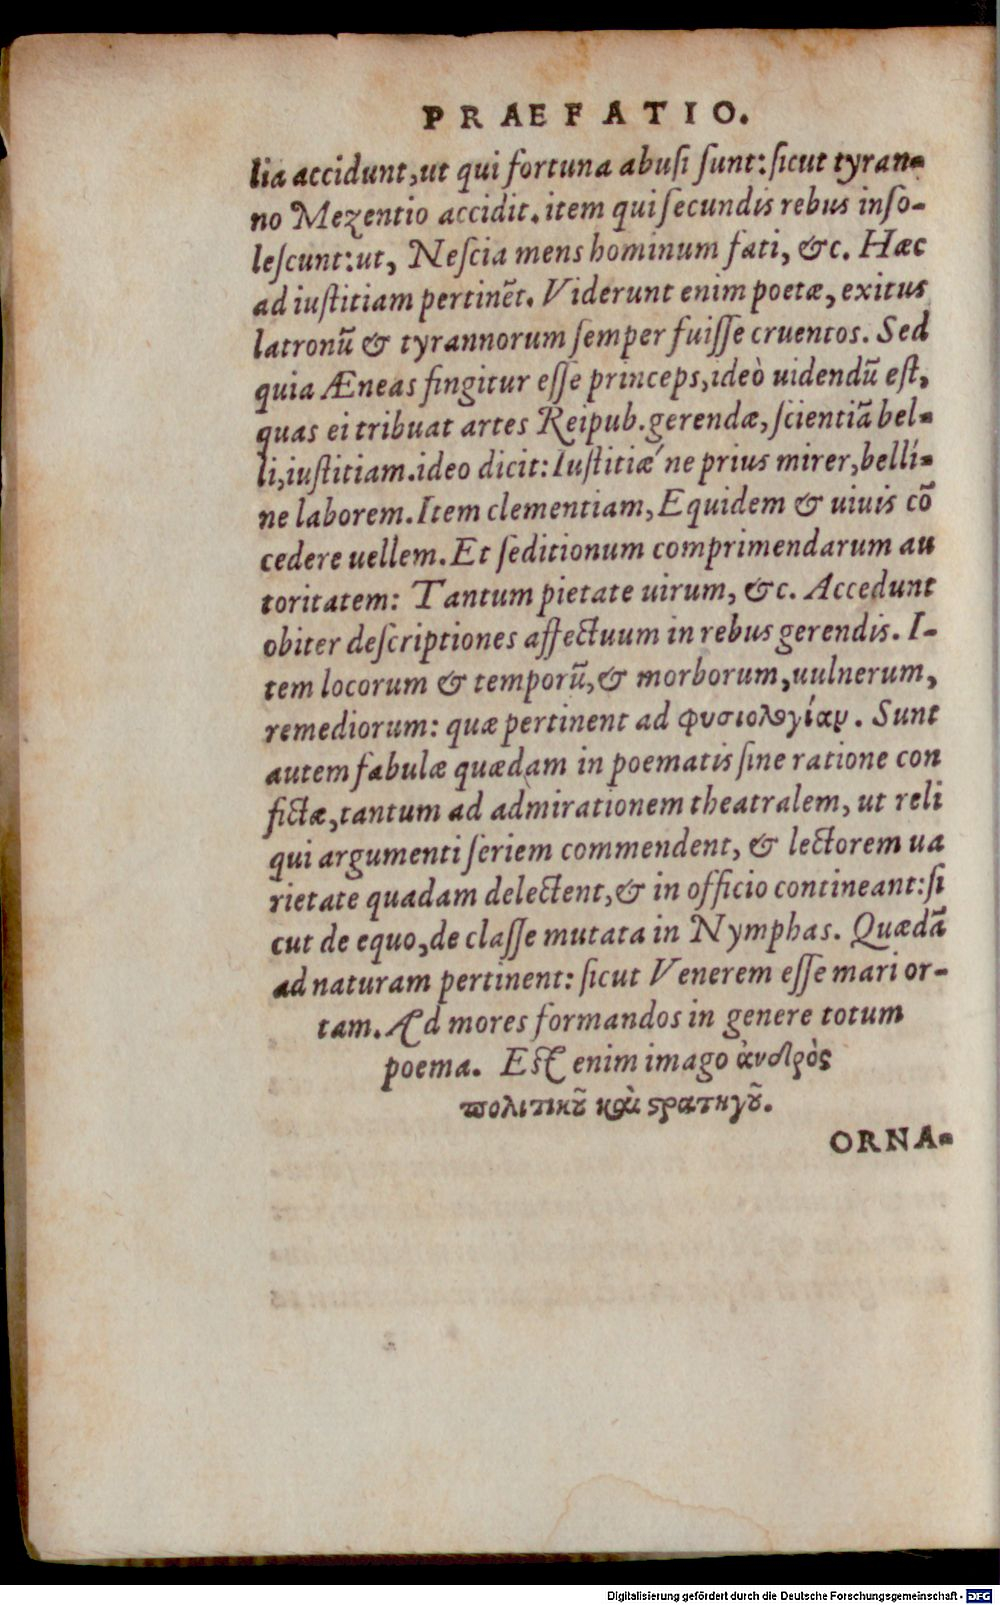 PRAEFATIO.
lia accidunt, ut qui fortuna abusi sunt: sicut tyran-
no Mezentio accidit. item qui secundis rebus inso-
lescunt: ut, Nescia mens hominum fati, &c. Hæc
ad iustitiam pertinẽt. Viderunt enim poetæ, exitus
latronũ & tyrannorum semper fuisse cruentos. Sed
quia Æneas fingitur esse princeps, ideò uidendũ est,
quas ei tribuat artes Reipub. gerendæ, scientiã bel-
li, iustitiam. ideo dicit: Iustitiæ´ne prius mirer, belli-
ne laborem. Item clementiam, Equidem & uiuis cõ
cedere uellem. Et seditionum comprimendarum au
toritatem: Tantum pietate uirum, &c. Accedunt
obiter descriptiones affectuum in rebus gerendis. I-
tem locorum & temporũ, & morborum, uulnerum,
remediorum: quæ pertinent ad φυσιολογίαν. Sunt
autem fabulæ quædam in poematis sine ratione con
fictæ, tantum ad admirationem theatralem, ut reli
qui argumenti seriem commendent, & lectorem ua
rietate quadam delectent, & in officio contineant: si
cut de equo, de classe mutata in Nymphas. Quædã
ad naturam pertinent: sicut Venerem esse mari or-
tam. Ad mores formandos in genere totum
poema. Est enim imago ἀνδρὸς
πολιτικοῦ καὶ στρατηγοῦ.
ORNA-
Digitalisierung gefördert durch die Deutsche Forschungsgemeinschaft - DFG